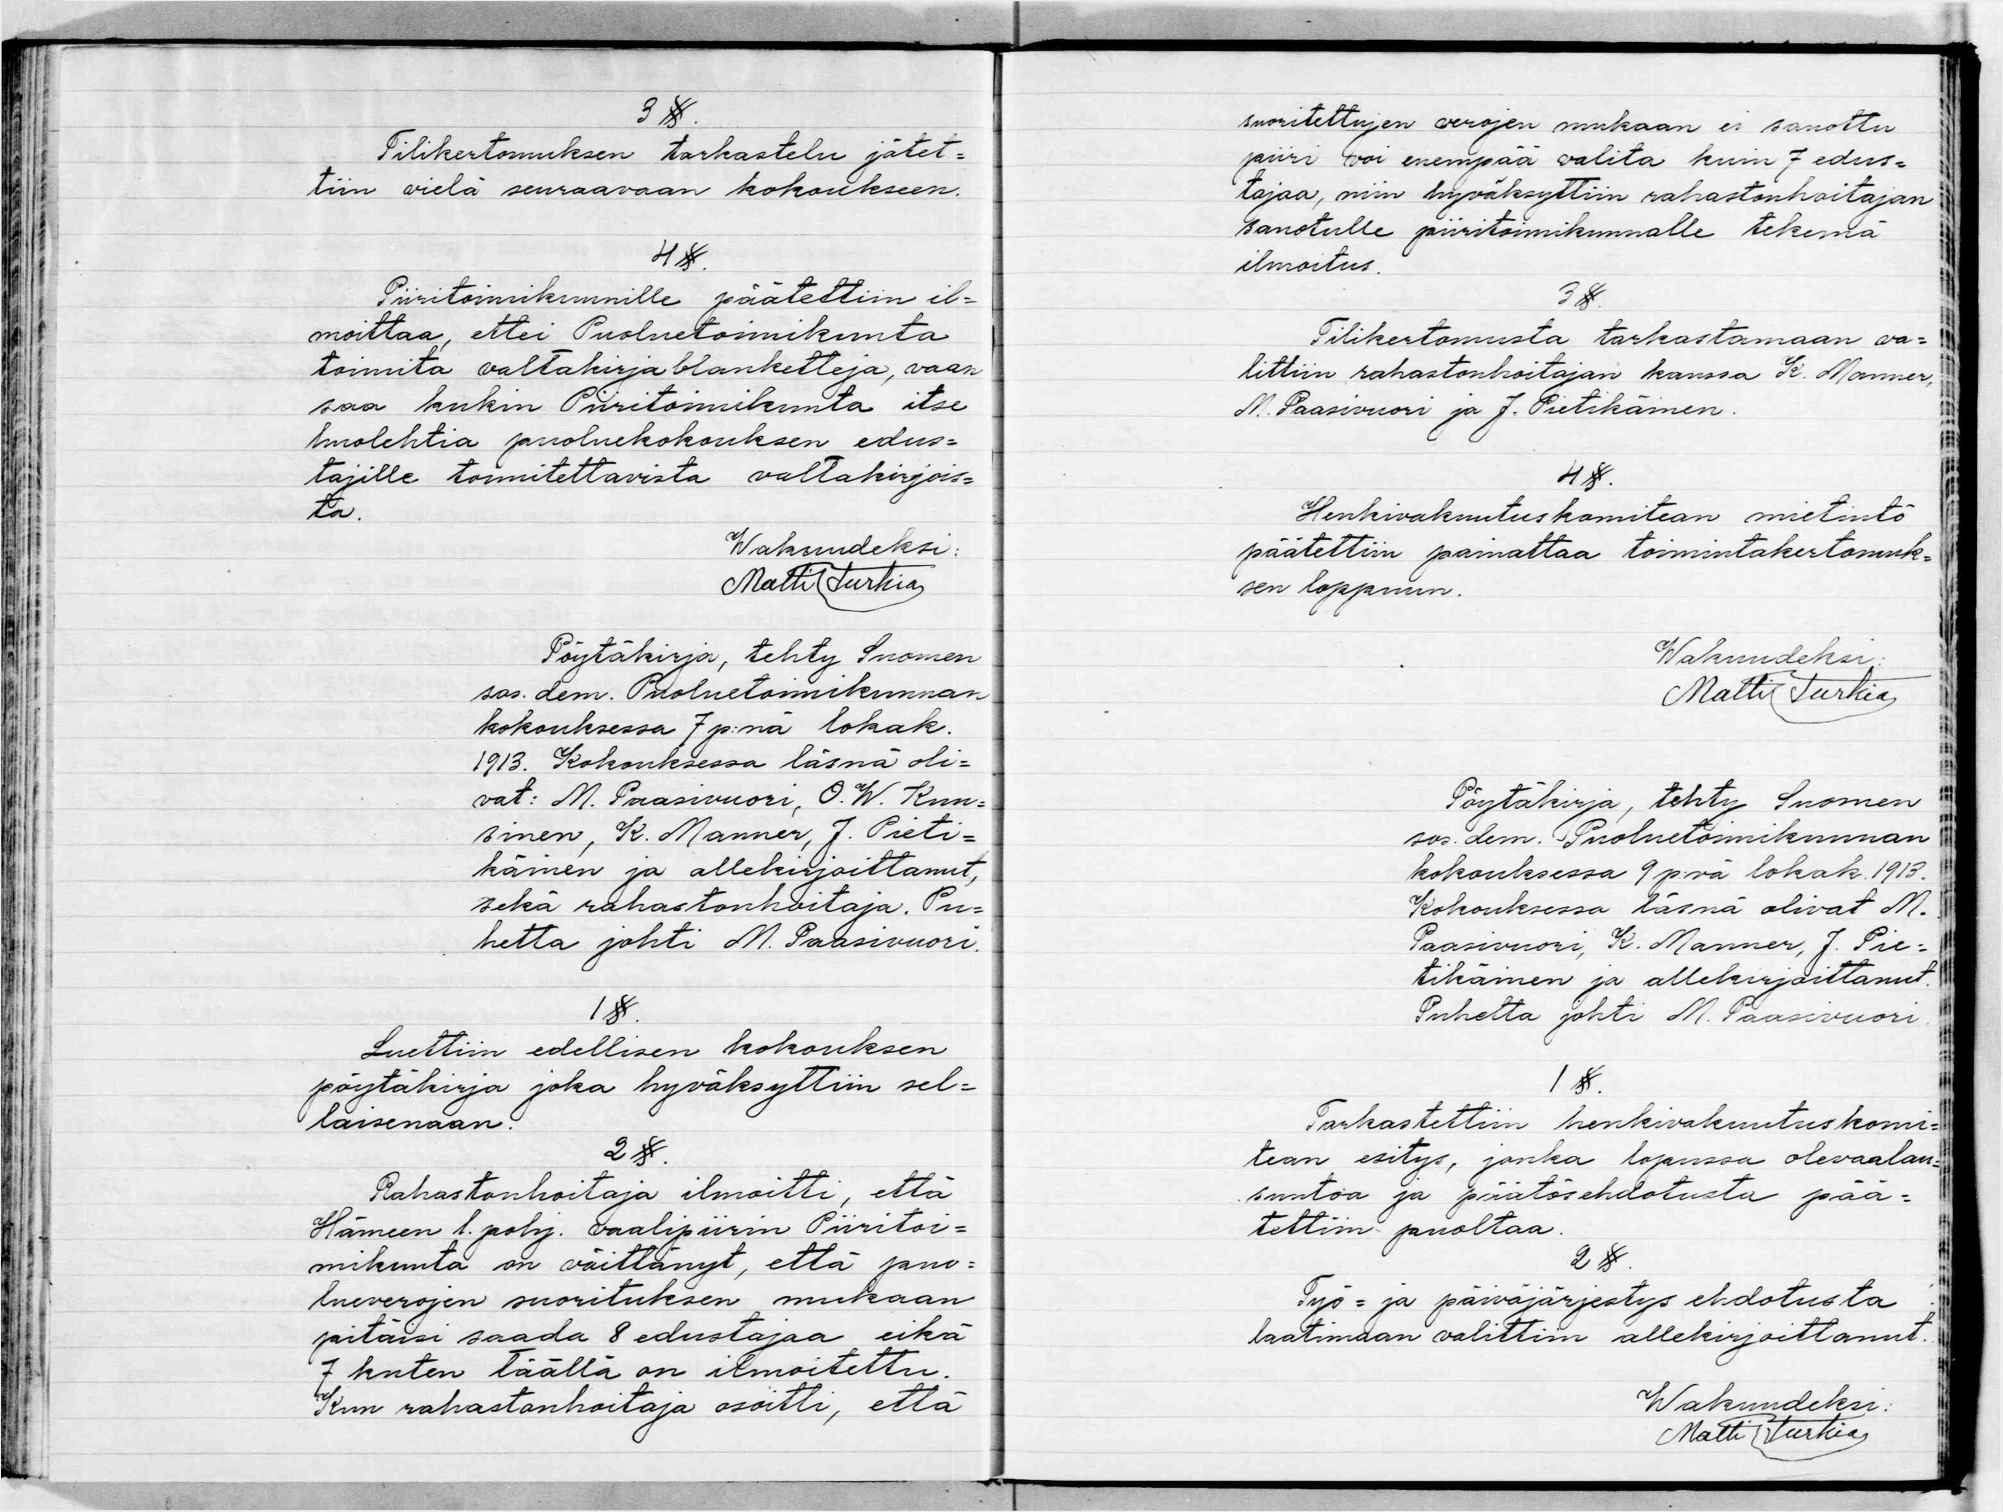 3 §.
Tilikertomuksen tarkastelu jätet=
tiin vielä seuraavaan kokoukseen.
4 §.
Piiritoimikunnille päätettiin il=
moittaa, ettei Puoluetoimikunta
toimita valtakirjablanketteja, vaan
saa kukin Piiritoimikunta itse
huolehtia puoluekokouksen edus=
tajille toimitettavista valtakirjois=
ta.
Wakuudeksi:
Matti Turkia
Pöytäkirja, tehty Suomen
sos. dem. Puoluetoimikunnan
kokouksessa 7 p:nä lokak.
1913. Kokouksessa läsnä oli=
vat: M. Paasivuori, O. W. Kuu=
sinen, K. Manner, J. Pieti=
käinen ja allekirjoittanut,
sekä rahastonhoitaja. Pu=
hetta johti M. Paasivuori.
1 §.
Luettiin edellisen kokouksen
pöytäkirja joka hyväksyttiin sel=
laisenaan.
2 §.
Rahastonhoitaja ilmoitti, että
Hämeen l. pohj. vaalipiirin Piiritoi=
mikunta on väittänyt, että puo=
lueverojen suorituksen mukaan
pitäisi saada 8 edustajaa eikä
7 kuten täällä on ilmoitettu.
Kun rahastonhoitaja osoitti, että
suoritettujen verojen mukaan ei sanottu
piiri voi enempää valita kuin 7 edus=
tajaa, niin hyväksyttiin rahastonhoitajan
sanotulle piiritoimikunnalle tekemä
ilmoitus.
3 §.
Tilikertomusta tarkastamaan va=
littiin rahastonhoitajan kanssa K. Manner,
M. Paasivuori ja J. Pietikäinen.
4 §.
Henkivakuutuskomitean mietintö
päätettiin painattaa toimintakertomuk=
sen loppuun.
Wakuudeksi:
Matti Turkia
Pöytäkirja, tehty Suomen
sos. dem. Puoluetoimikunnan
kokouksessa 9 p:vä lokak. 1913.
Kokouksessa läsnä olivat M.
Paasivuori, K. Manner, J. Pie=
tikäinen ja allekirjoittanut.
Puhetta johti M. Paasivuori.
1 §.
Tarkastettiin henkivakuutuskomi=
tean esitys, jonka lopussa olevaalau=
suntoa ja päätösehdotusta pää=
tettiin puoltaa.
2 §.
Työ= ja päiväjärjestys ehdotusta
laatimaan valittiin allekirjoittanut.
Wakuudeksi:
Matti Turkia